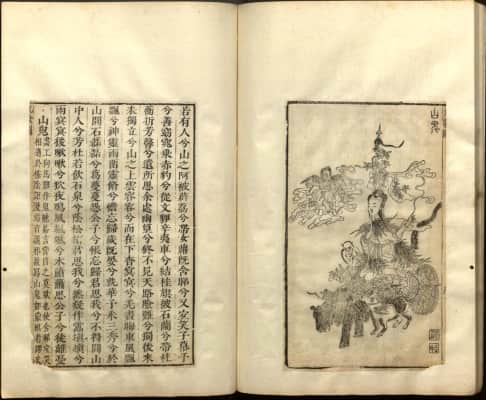 山鬼
若有人兮山之阿被薜荔兮帶女蘿既含睇兮又宜笑子慕予
兮善窈窕乘赤豹兮從文貍辛夷車兮結桂旗被石蘭兮帶杜
衡折芳馨兮遺所思余處幽篁兮終不見天路險難兮獨後來
表獨立兮山之上雲容容兮而在下杳冥冥兮羌晝晦東風
飄兮神靈雨留靈脩兮憺忘歸歲既晏兮孰華予采三秀兮於
山間石磊磊兮葛蔓蔓怨公子兮悵忘歸君思我兮不得閒山
中人兮芳杜若飲石泉兮蔭松柏君思我兮然疑作靁填填兮
雨冥冥猨啾啾兮狖夜鳴風颯颯兮木蕭蕭思公子兮徒離憂
山鬼